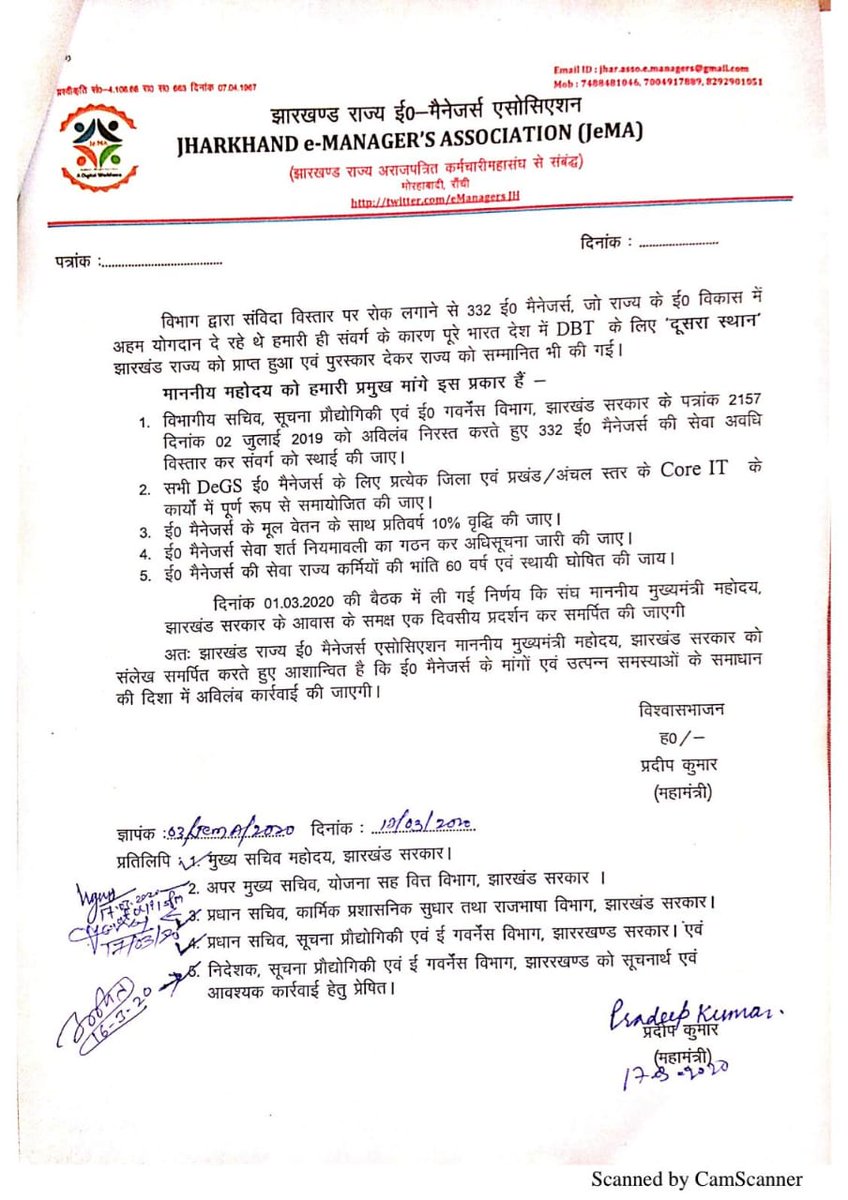 स्वीकृति सं०-4.106.66 रा० स० 663 दिनांक 07.04.1967
Email ID : jhar.asso.e.managers@gmail.com
Mob : 7488481046, 7004917889, 8292901051
झारखण्ड राज्य ई०-मैनेजर्स एसोसिएशन
JHARKHAND e-MANAGER'S ASSOCIATION (JeMA)
(झारखण्ड राज्य अराजपत्रित कर्मचारीमहासंघ से संबंद्ध)
मोरहाबादी, राँची
http://twitter.com/eManagersJH
JeMA
A Digital Workforce
पत्रांक :....................................
दिनांक : ........................
विभाग द्वारा संविदा विस्तार पर रोक लगाने से 332 ई० मैनेजर्स, जो राज्य के ई० विकास में
अहम योगदान दे रहे थे हमारी ही संवर्ग के कारण पूरे भारत देश में DBT के लिए 'दूसरा स्थान'
झारखंड राज्य को प्राप्त हुआ एवं पुरस्कार देकर राज्य को सम्मानित भी की गई।
माननीय महोदय को हमारी प्रमुख मांगे इस प्रकार हैं –
1. विभागीय सचिव, सूचना प्रौद्योगिकी एवं ई० गवर्नेंस विभाग, झारखंड सरकार के पत्रांक 2157
दिनांक 02 जुलाई 2019 को अविलंब निरस्त करते हुए 332 ई० मैनेजर्स की सेवा अवधि
विस्तार कर संवर्ग को स्थाई की जाए।
2. सभी DeGS ई० मैनेजर्स के लिए प्रत्येक जिला एवं प्रखंड/अंचल स्तर के Core IT के
कार्यो में पूर्ण रूप से समायोजित की जाए।
3. ई० मैनेजर्स के मूल वेतन के साथ प्रतिवर्ष 10% वृद्धि की जाए।
4. ई० मैनेजर्स सेवा शर्त नियमावली का गठन कर अधिसूचना जारी की जाए।
5. ई० मैनेजर्स की सेवा राज्य कर्मियों की भांति 60 वर्ष एवं स्थायी घोषित की जाय।
दिनांक 01.03.2020 की बैठक में ली गई निर्णय कि संघ माननीय मुख्यमंत्री महोदय,
झारखंड सरकार के आवास के समक्ष एक दिवसीय प्रदर्शन कर समर्पित की जाएगी
अतः झारखंड राज्य ई० मैनेजर्स एसोसिएशन माननीय मुख्यमंत्री महोदय, झारखंड सरकार को
संलेख समर्पित करते हुए आशान्वित है कि ई० मैनेजर्स के मांगों एवं उत्पन्न समस्याओं के समाधान
की दिशा में अविलंब कार्रवाई की जाएगी।
विश्वासभाजन
ह०/–
प्रदीप कुमार
(महामंत्री)
ज्ञापंक :03/JemA/2020 दिनांक : 12/03/2020
प्रतिलिपि : 1. मुख्य सचिव महोदय, झारखंड सरकार।
2. अपर मुख्य सचिव, योजना सह वित्त विभाग, झारखंड सरकार ।
17.03.2020
3. प्रधान सचिव, कार्मिक प्रशासनिक सुधार तथा राजभाषा विभाग, झारखंड सरकार।
17/03/20
4. प्रधान सचिव, सूचना प्रौद्योगिकी एवं ई गवर्नेंस विभाग, झाररखण्ड सरकार। एवं
5. निदेशक, सूचना प्रौद्योगिकी एवं ई गवर्नेंस विभाग, झाररखण्ड को सूचनार्थ एवं
आवश्यक कार्रवाई हेतु प्रेषित।
16-3-20
Pradeep Kumar.
प्रदीप कुमार
(महामंत्री)
17-3-2020
Scanned by CamScanner